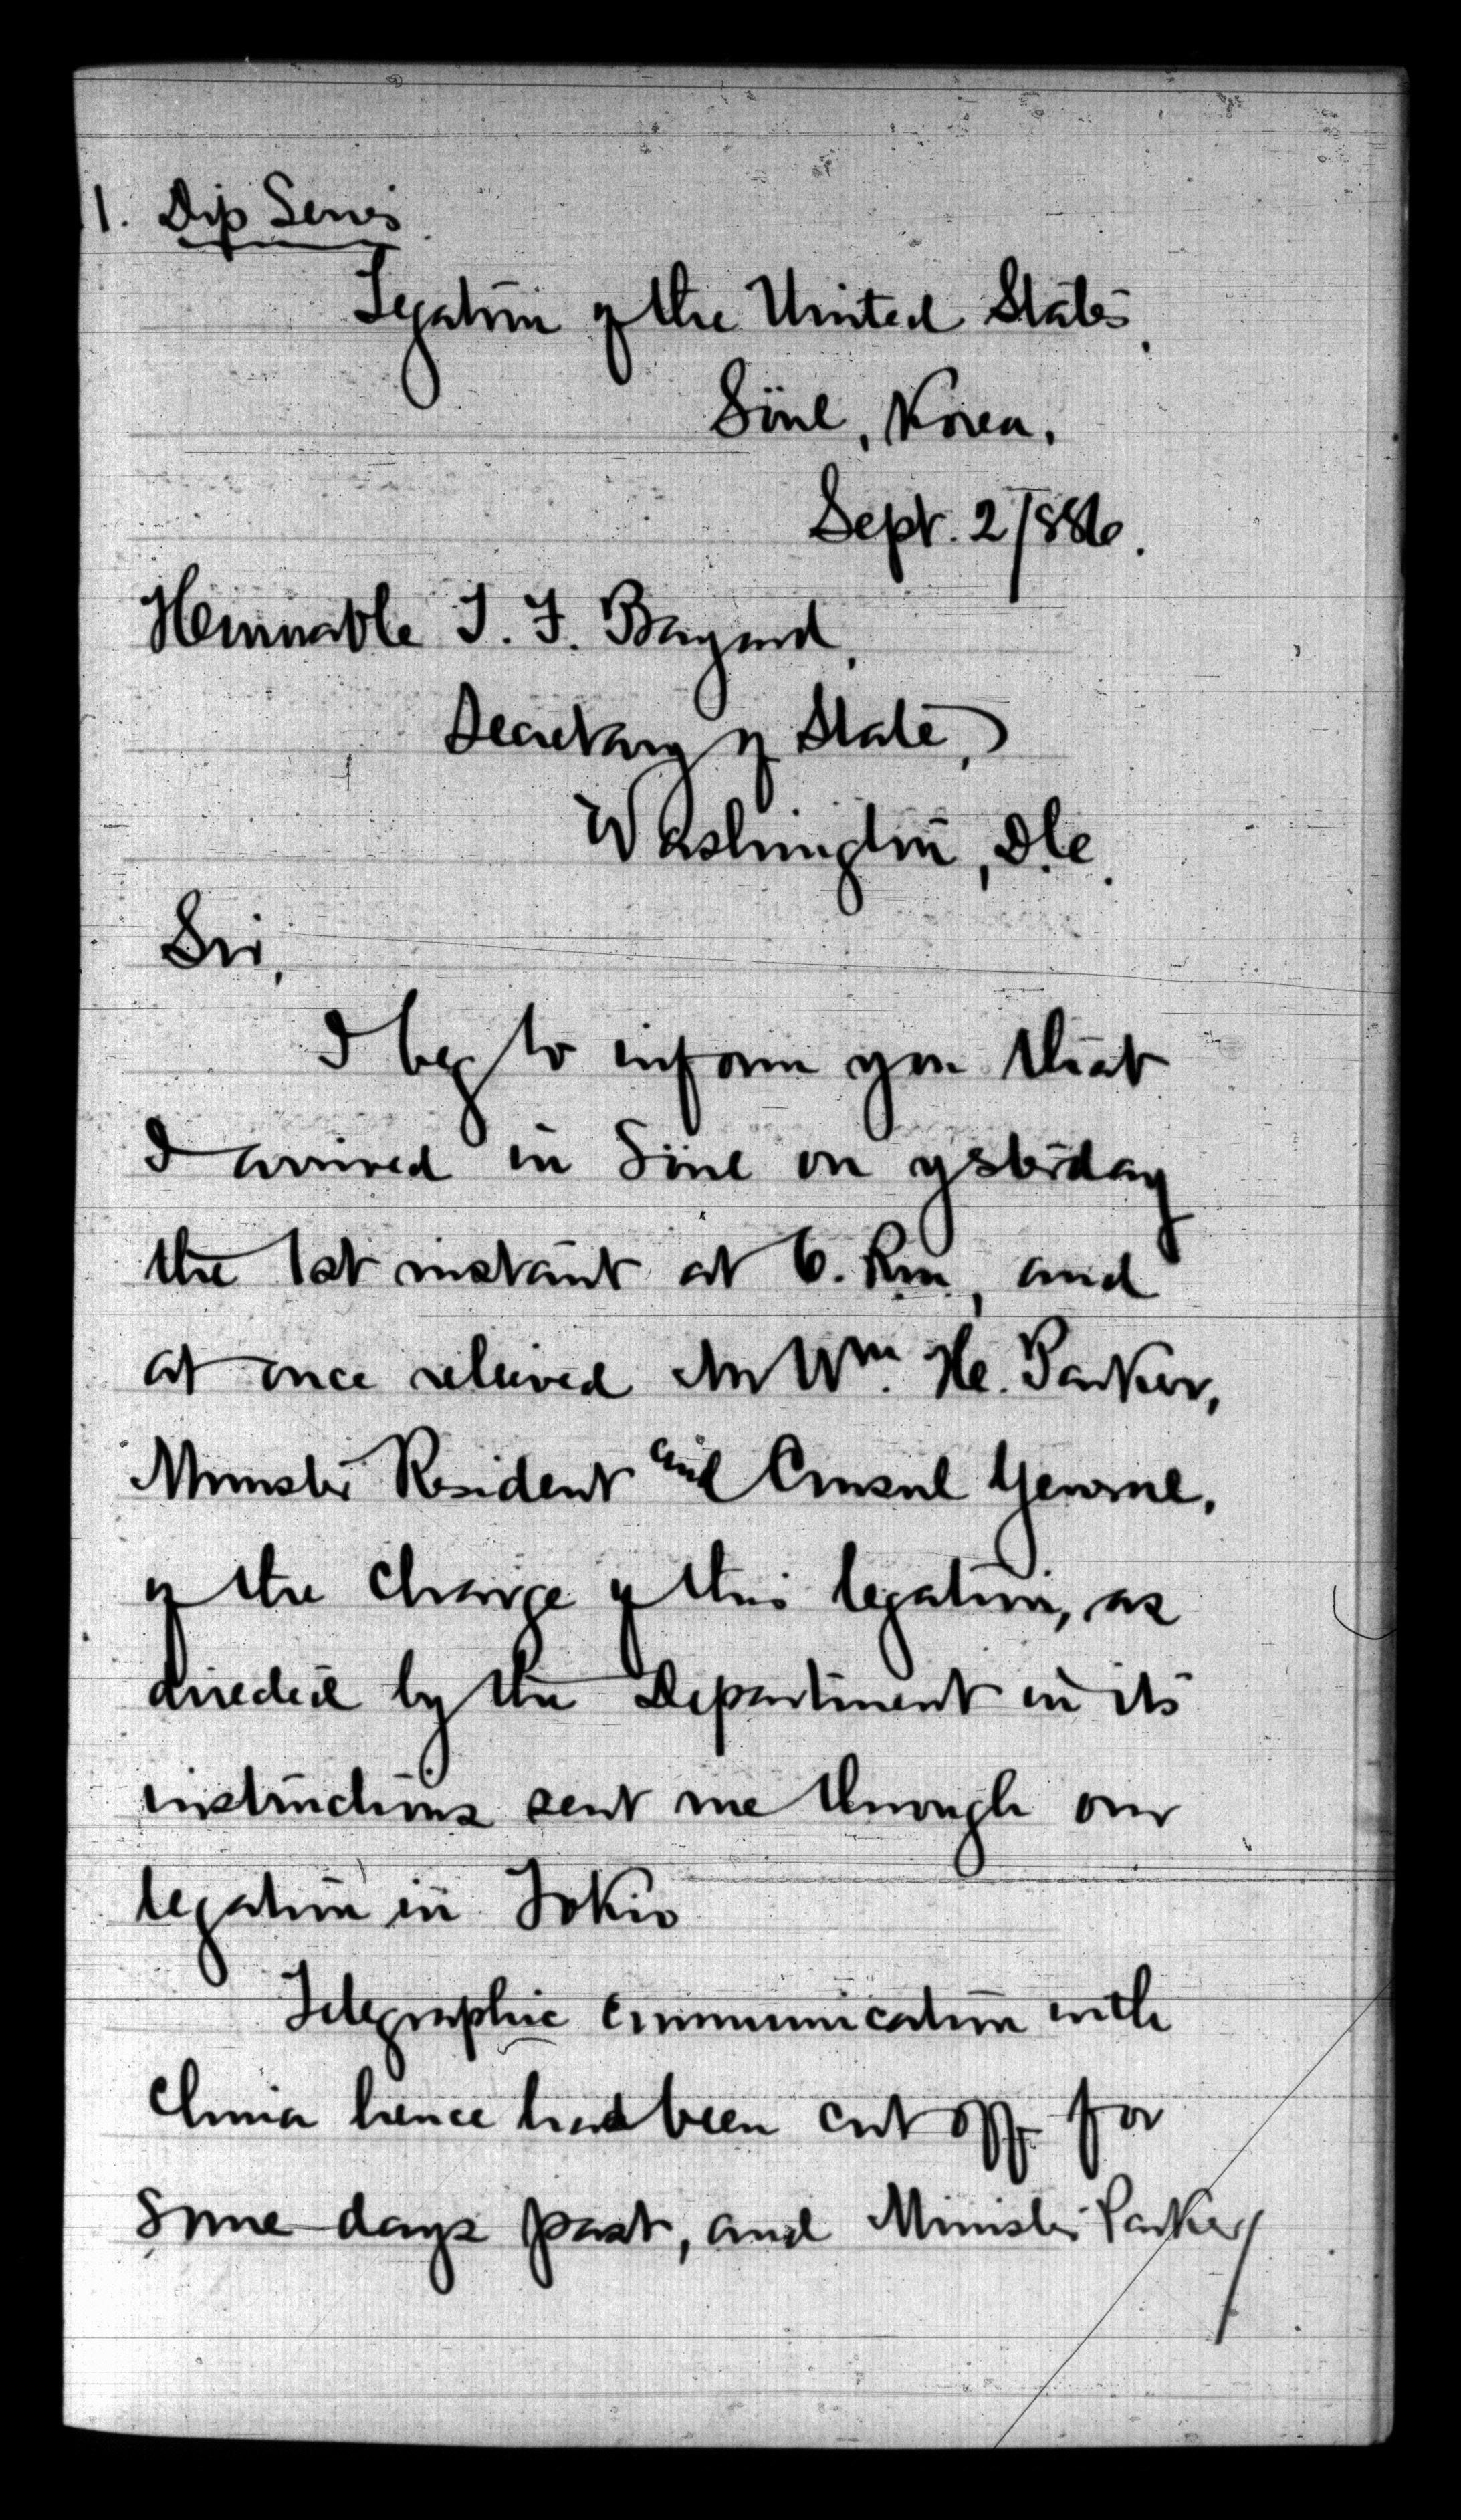 1. Dip Series
Legation of the United States,
Söul, Korea.
Sept. 2/886.
Honorable T. F. Bayard,
Secretary of State,
Washington, D.C.
Sir,
I beg to inform you that
I arrived in Söul on ysterday
the 1st instant at 6. P.m., and
at once relieved Mr Wm. H. Parker,
Minister Resident and Consul General,
of the charge of this legation, as
directed by the Department in its
instructions sent me through our
legation in Tokio
Telegraphic communication with
China hence had been cut off for
some days past, and Minister Parker